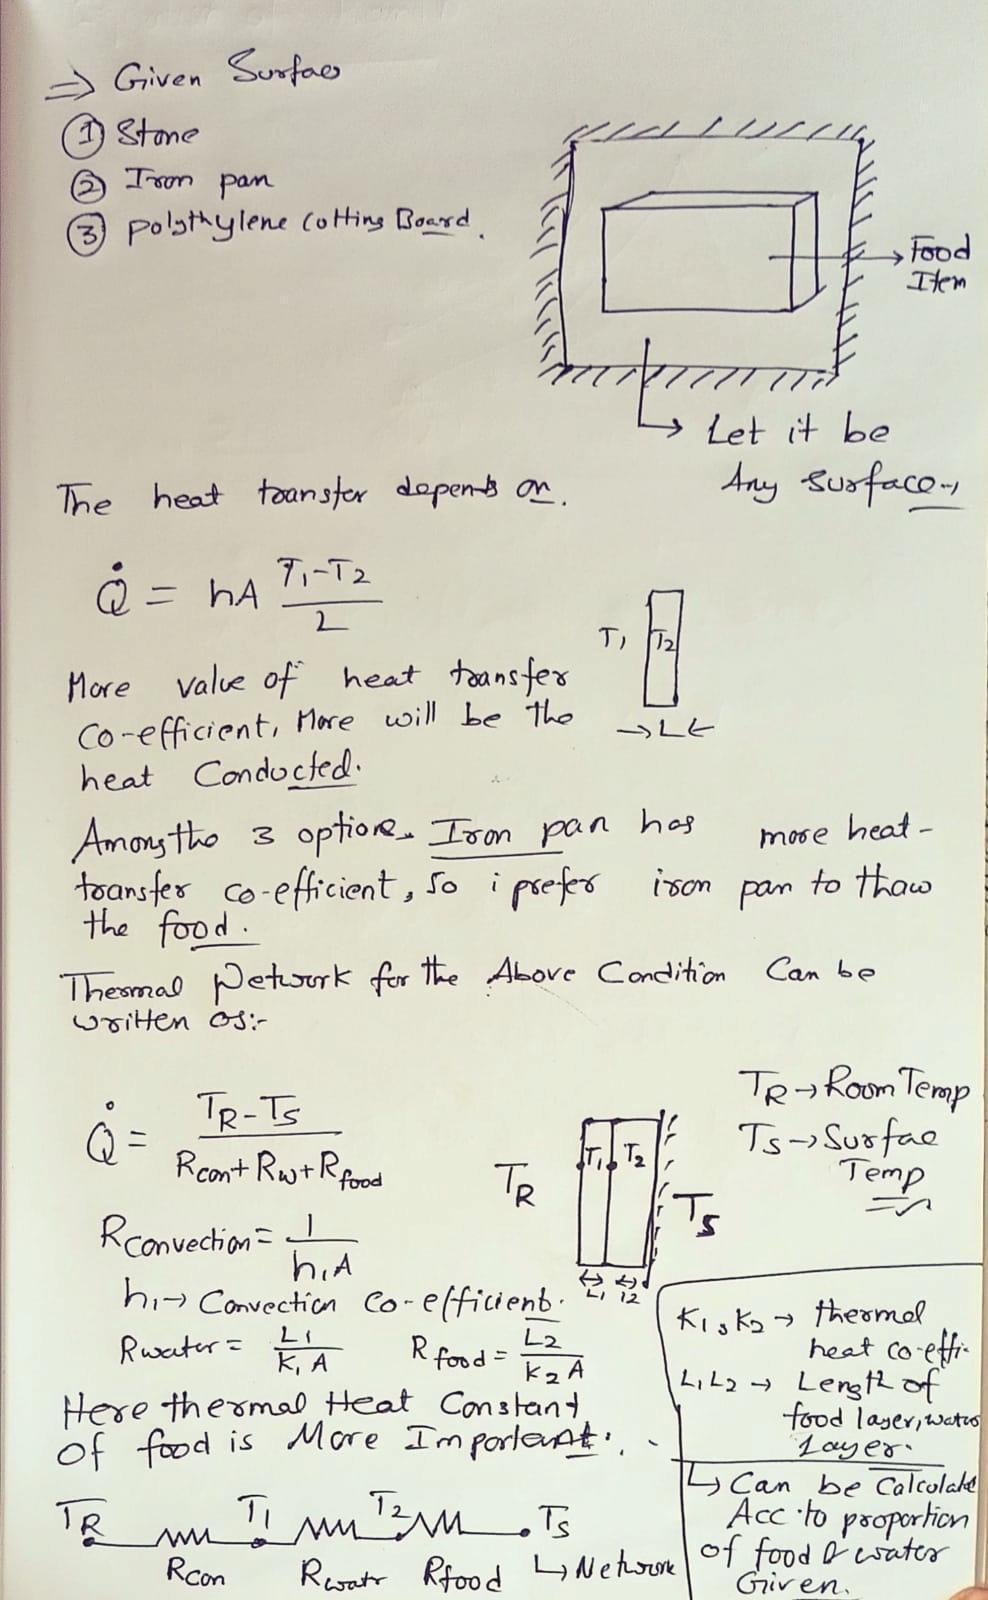 ⇒ Given Surfac
① Stone
② Iron pan
③ polythylene Cotting Board.
Food
Item
Let it be
Any Surface
The heat transfer depends on.
Q̇ = hA (T1-T2)/L
T1 T2
→L←
More value of heat transfer
Co-efficient, More will be the
heat Conducted.
Among the 3 options Iron pan has more heat-
transfer co-efficient, so i prefer iron pan to thaw
the food.
Thermal Network for the Above Condition Can be
written as:-
Q̇ = (TR-TS)/(Rcon+Rw+Rfood)
TR T1 T2 TS
L1 L2
TR → Room Temp
TS → Surfac
Temp
Rconvection = 1/(h1A)
h1 → Convection Co-efficient.
Rwater = L1/(K1A) Rfood = L2/(K2A)
K1, K2 → thermal
heat co-effi-
L1 L2 → Length of
food layer, water
Layer.
↳ Can be Calculate
Acc. to proportion
of food & water
Given.
Here thermal Heat Constant
Of food is More Important.
TR T1 T2 TS
Rcon Rwatr Rfood ↳ Network